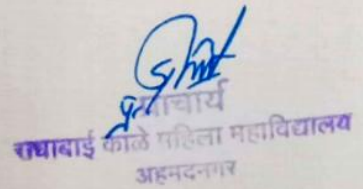 प्राचार्य
राधाबाई काळे महिला महाविद्यालय
अहमदनगर